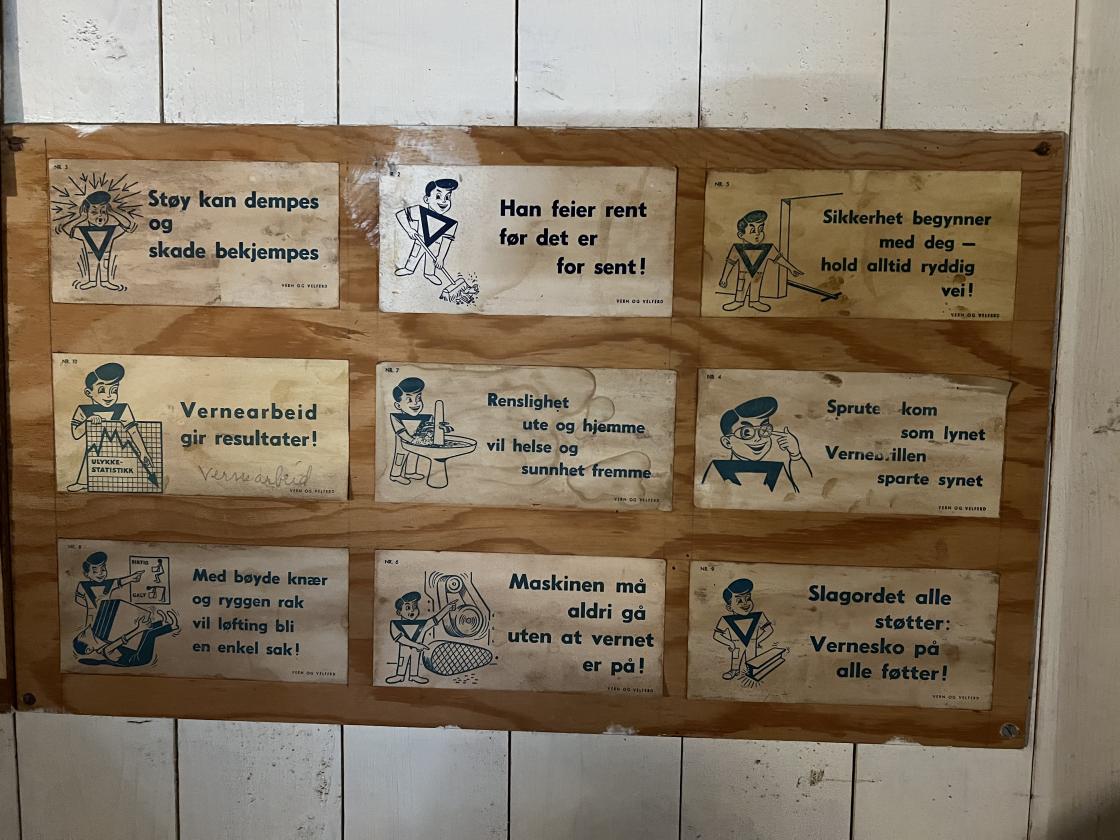 NR. 3
Støy kan dempes
og
skade bekjempes
VERN OG VELFERD
2
Han feier rent
før det er
for sent!
VERN OG VELFERD
NR. 5
Sikkerhet begynner
med deg —
hold alltid ryddig
vei!
VERN OG VELFERD
NR. 10
Vernearbeid
gir resultater!
ULYKKE-
STATISTIKK
Vernearbeid
VERN OG VELFERD
NR. 7
Renslighet
ute og hjemme
vil helse og
sunnhet fremme
VERN OG VELFERD
NR. 4
Sprute kom
som lynet
Verne illen
sparte synet
VERN OG VELFERD
NR. 8
RIKTIG
GALT
Med bøyde knær
og ryggen rak
vil løfting bli
en enkel sak!
VERN OG VELFERD
NR. 6
Maskinen må
aldri gå
uten at vernet
er på!
VERN OG VELFERD
NR. 9
Slagordet alle
støtter:
Vernesko på
alle føtter!
VERN OG VELFERD